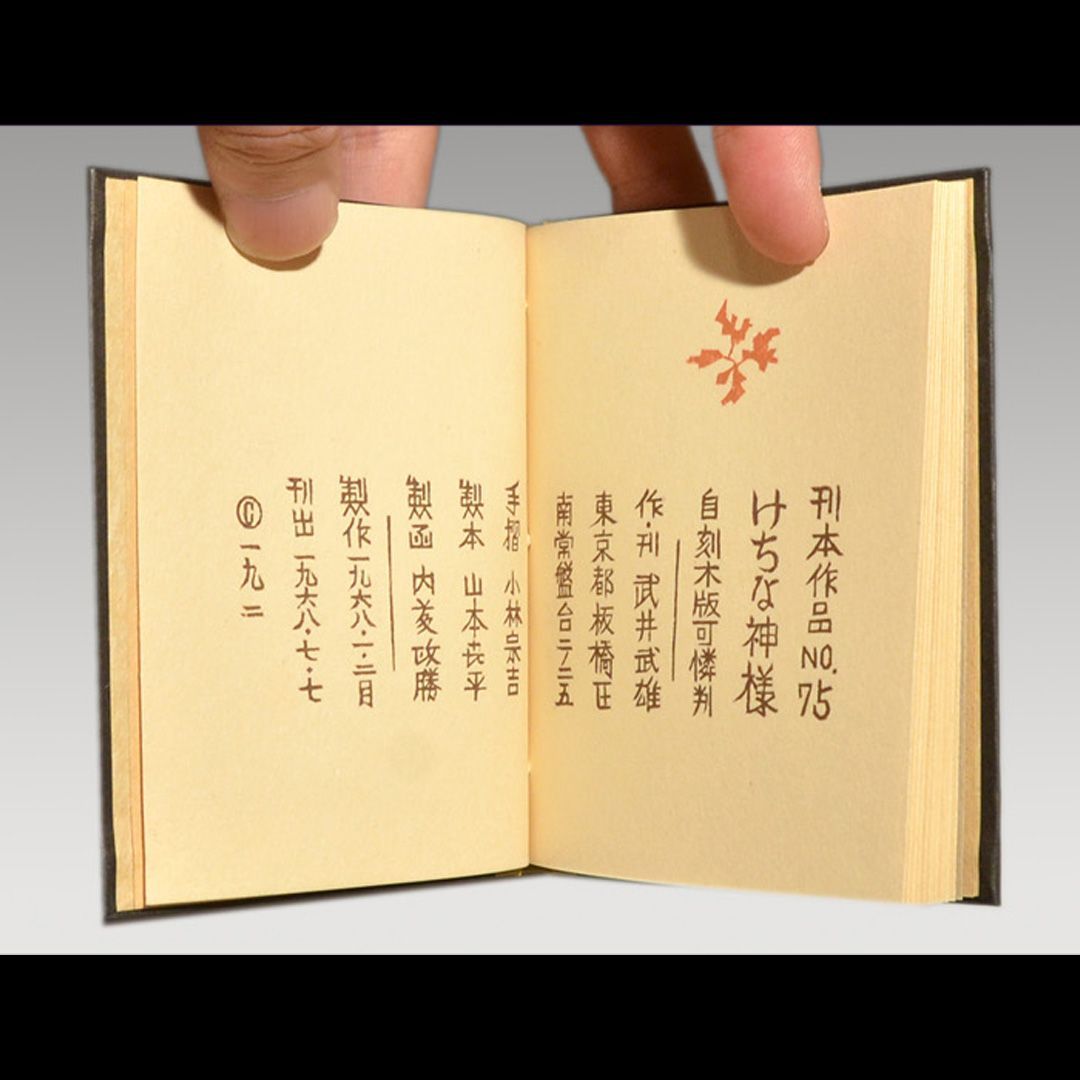 刊本作品 NO.75
けちな神様
自刻木版可憐判
作・刊 武井武雄
東京都板橋区
南常盤台二ノ二五
手摺 小林宗吉
製本 山本㐂平
製函 内藤政勝
製作 一九六八・一・二月
刊出 一九六八・七・七
© 一九二